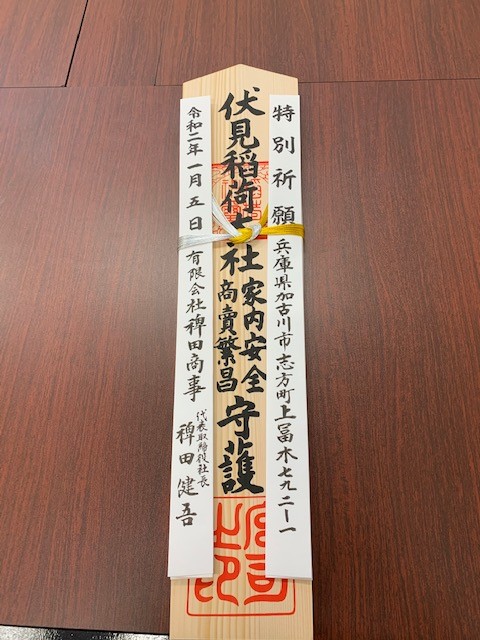 特別祈願 兵庫県加古川市志方町上冨木七九二ー一
伏見稲荷大社 家内安全 商賣繁昌 守護
令和二年一月五日 有限会社稗田商事
代表取締役社長
稗田健吾